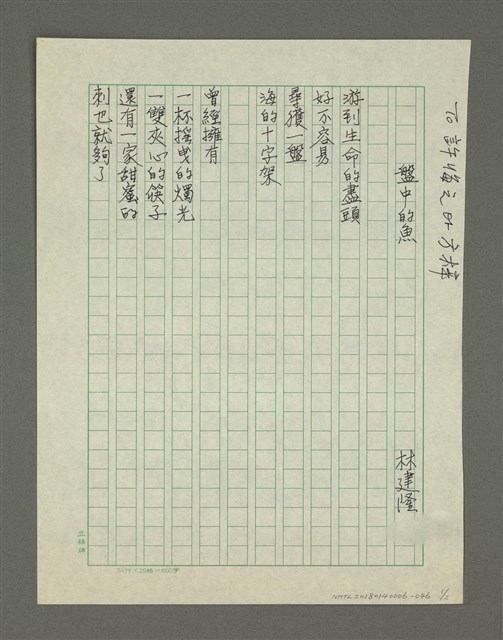 To 許悔之
盤中的魚
林建隆
游到生命的盡頭
好不容易
尋獲一盤
海的十字架
曾經擁有
一杯搖曳的燭光
一雙夾心的筷子
還有一家甜蜜的
刺也就夠了
24×25格=600字
NMTL20180140006-046
1/2